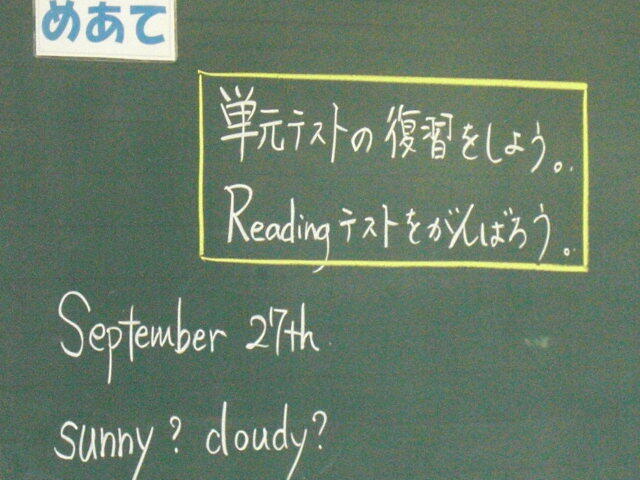 めあて
単元テストの復習をしよう。
Readingテストをがんばろう。
September 27th
sunny? cloudy?